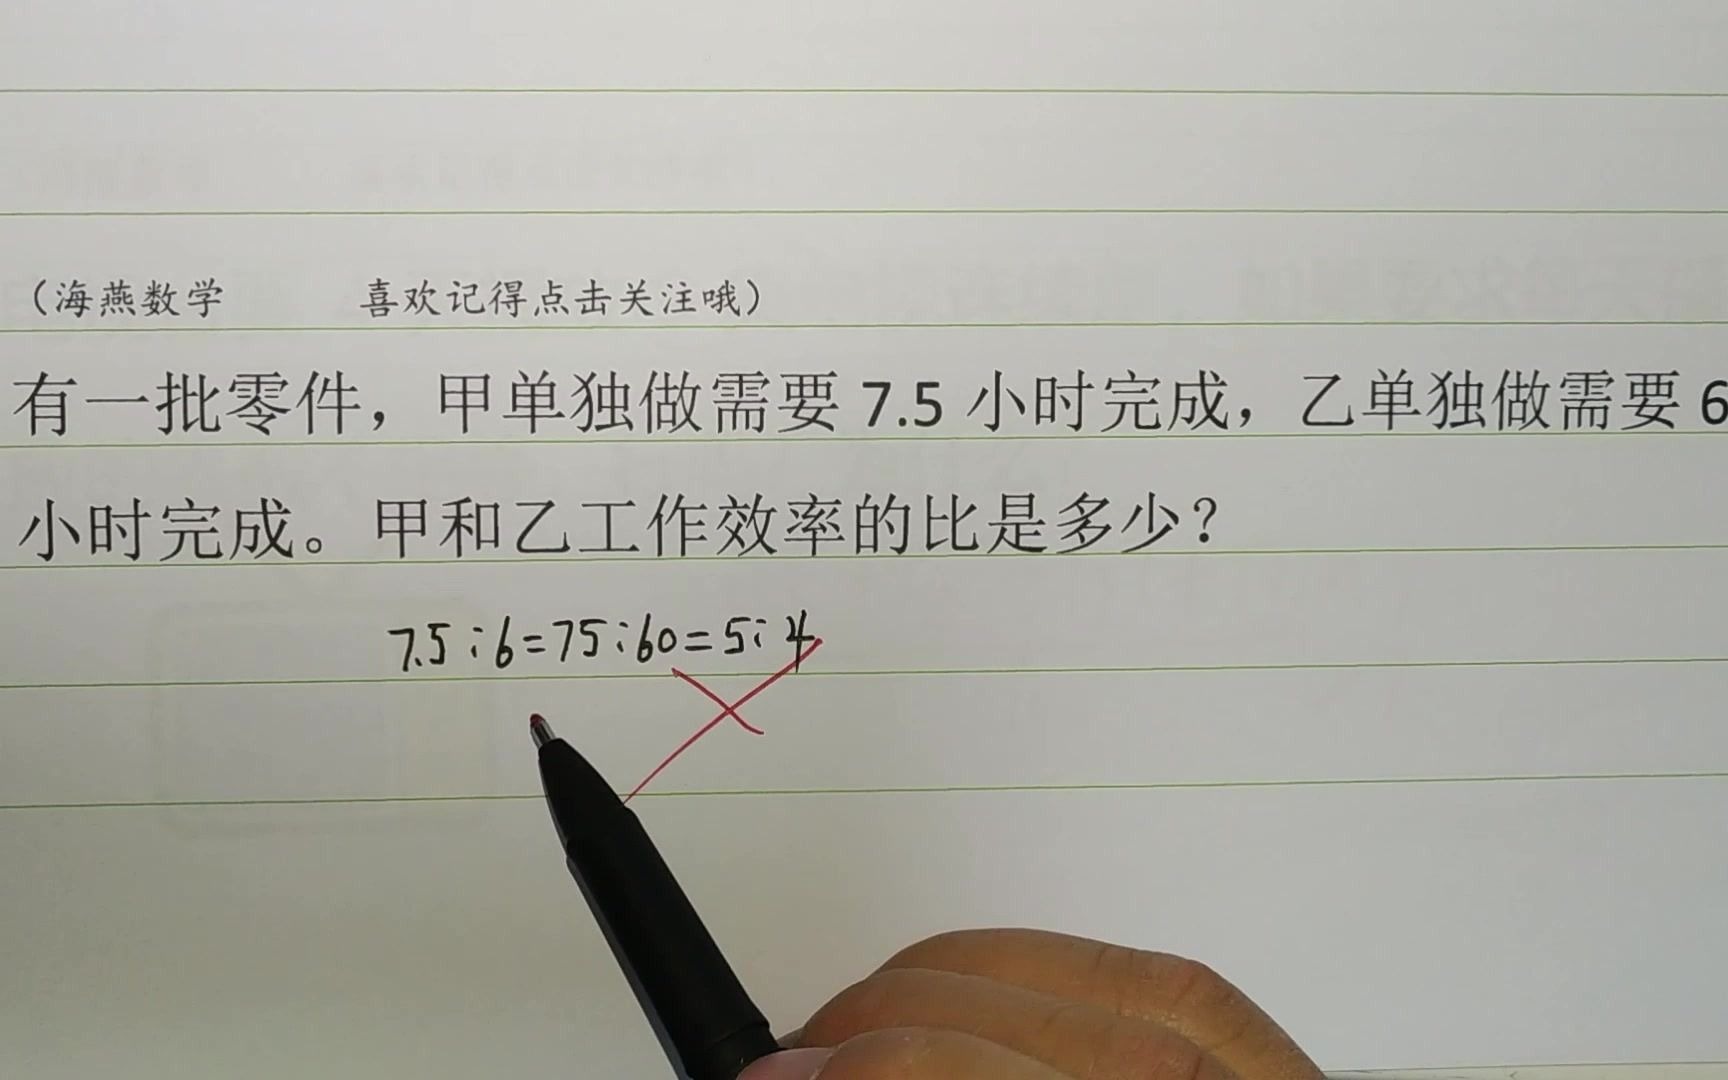 （海燕数学 喜欢记得点击关注哦）
有一批零件，甲单独做需要 7.5 小时完成，乙单独做需要 6
小时完成。甲和乙工作效率的比是多少？
7.5:6=75:60=5:4